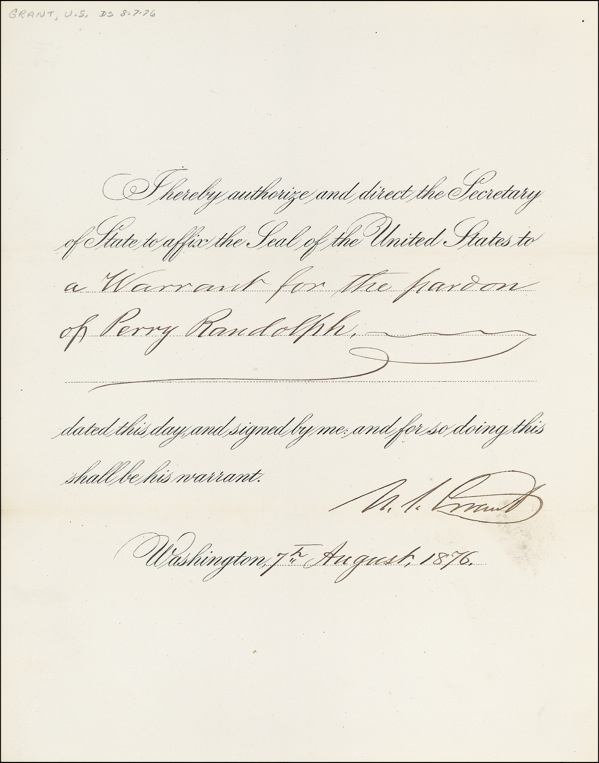 GRANT, U.S. DS 8-7-76
I hereby authorize and direct the Secretary
of State to affix the Seal of the United States to
a Warrant for the pardon
of Perry Randolph,
dated this day, and signed by me; and for so doing this
shall be his warrant.
U. S. Grant
Washington, 7th August, 1876.